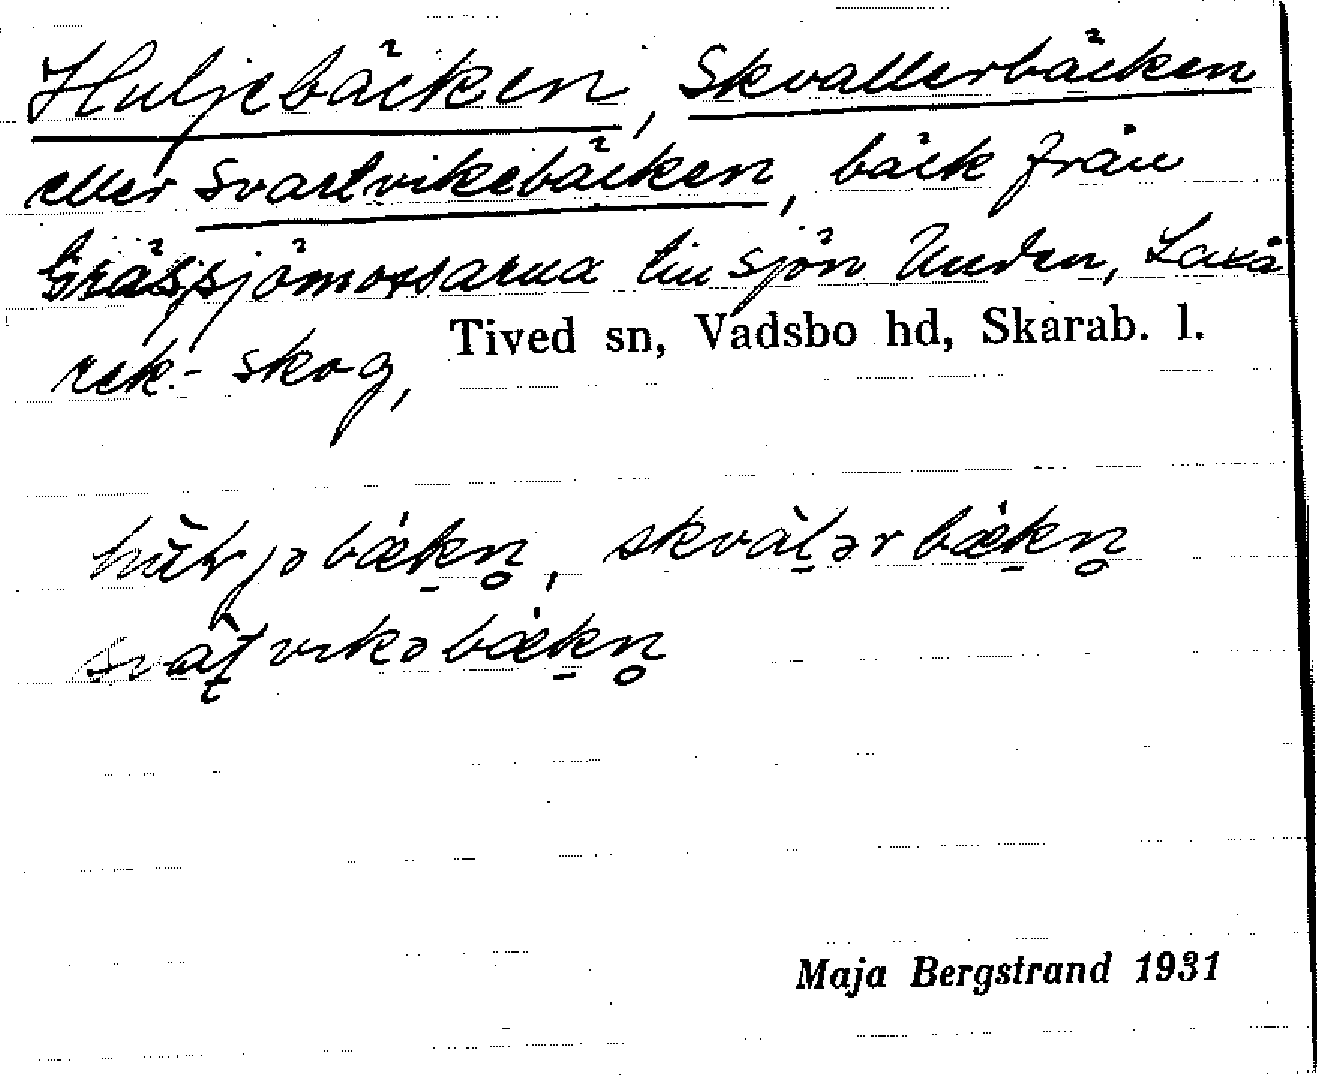 Huljebäcken, Skvallerbäcken
eller Svartvikebäcken, bäck från
Grässjömossarna till sjön Unden, Laxå
rek.- skog, Tived sn, Vadsbo hd, Skarab. l.
skvàḷər bæ̀k̠n̥
svàṭ vikə bæ̀k̠n̥
Maja Bergstrand 1931